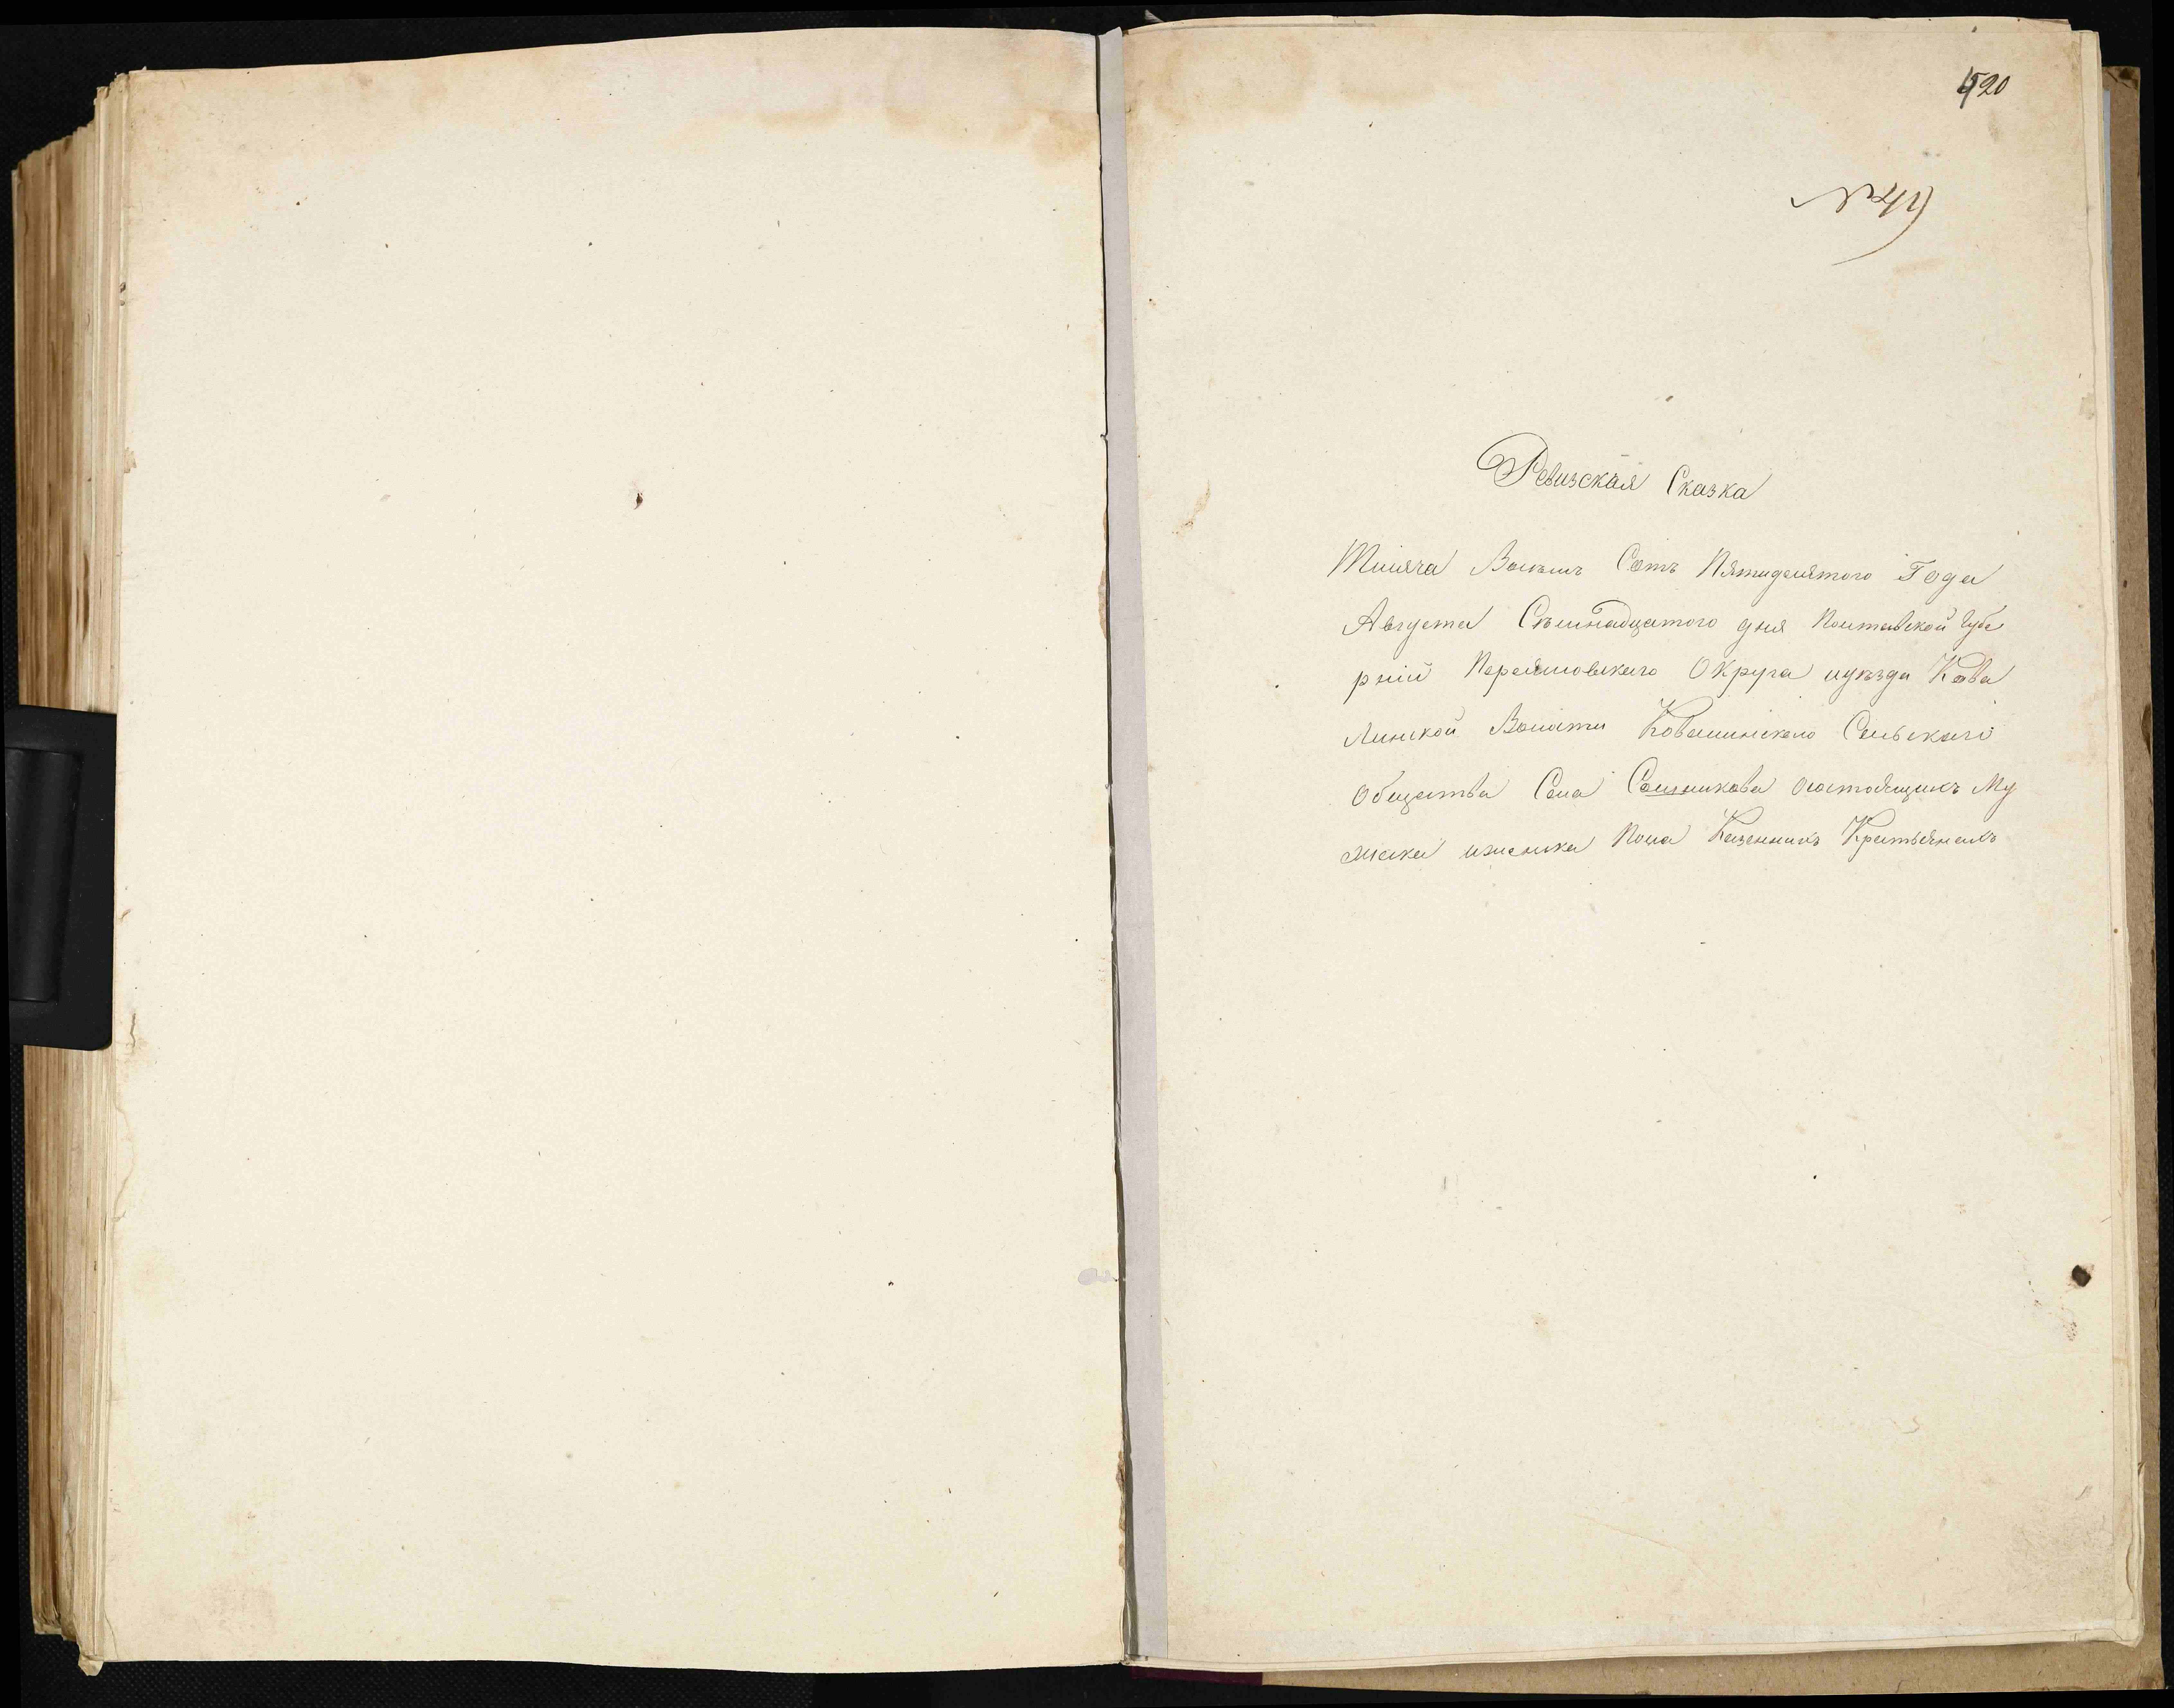 520
№ 41
Ревизская Сказка
Тысяча Восемь Сотъ Пятидесятого Года
Августа Съемнадцатого дня Полтавской Губе
рніи Переяславскаго Округа иуѣзда Кова
линской Волости Ковалинского Сельскаго
Общества Села Сошникова осостоящихъ Му
жеска иженска Пола Казенныхъ Крестьянахъ